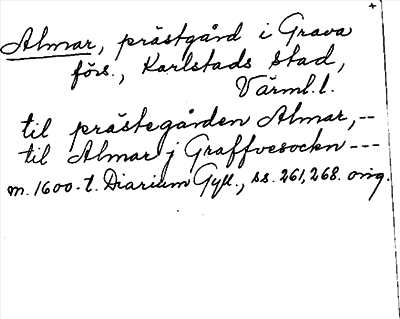 +
Almar, prästgård i Grava
förs., Karlstads stad,
Värml. l.
til prästegården Almar,--
til Almar j Graffvesockn---
m. 1600-t. Diarium Gyll., ss. 261, 268. orig.